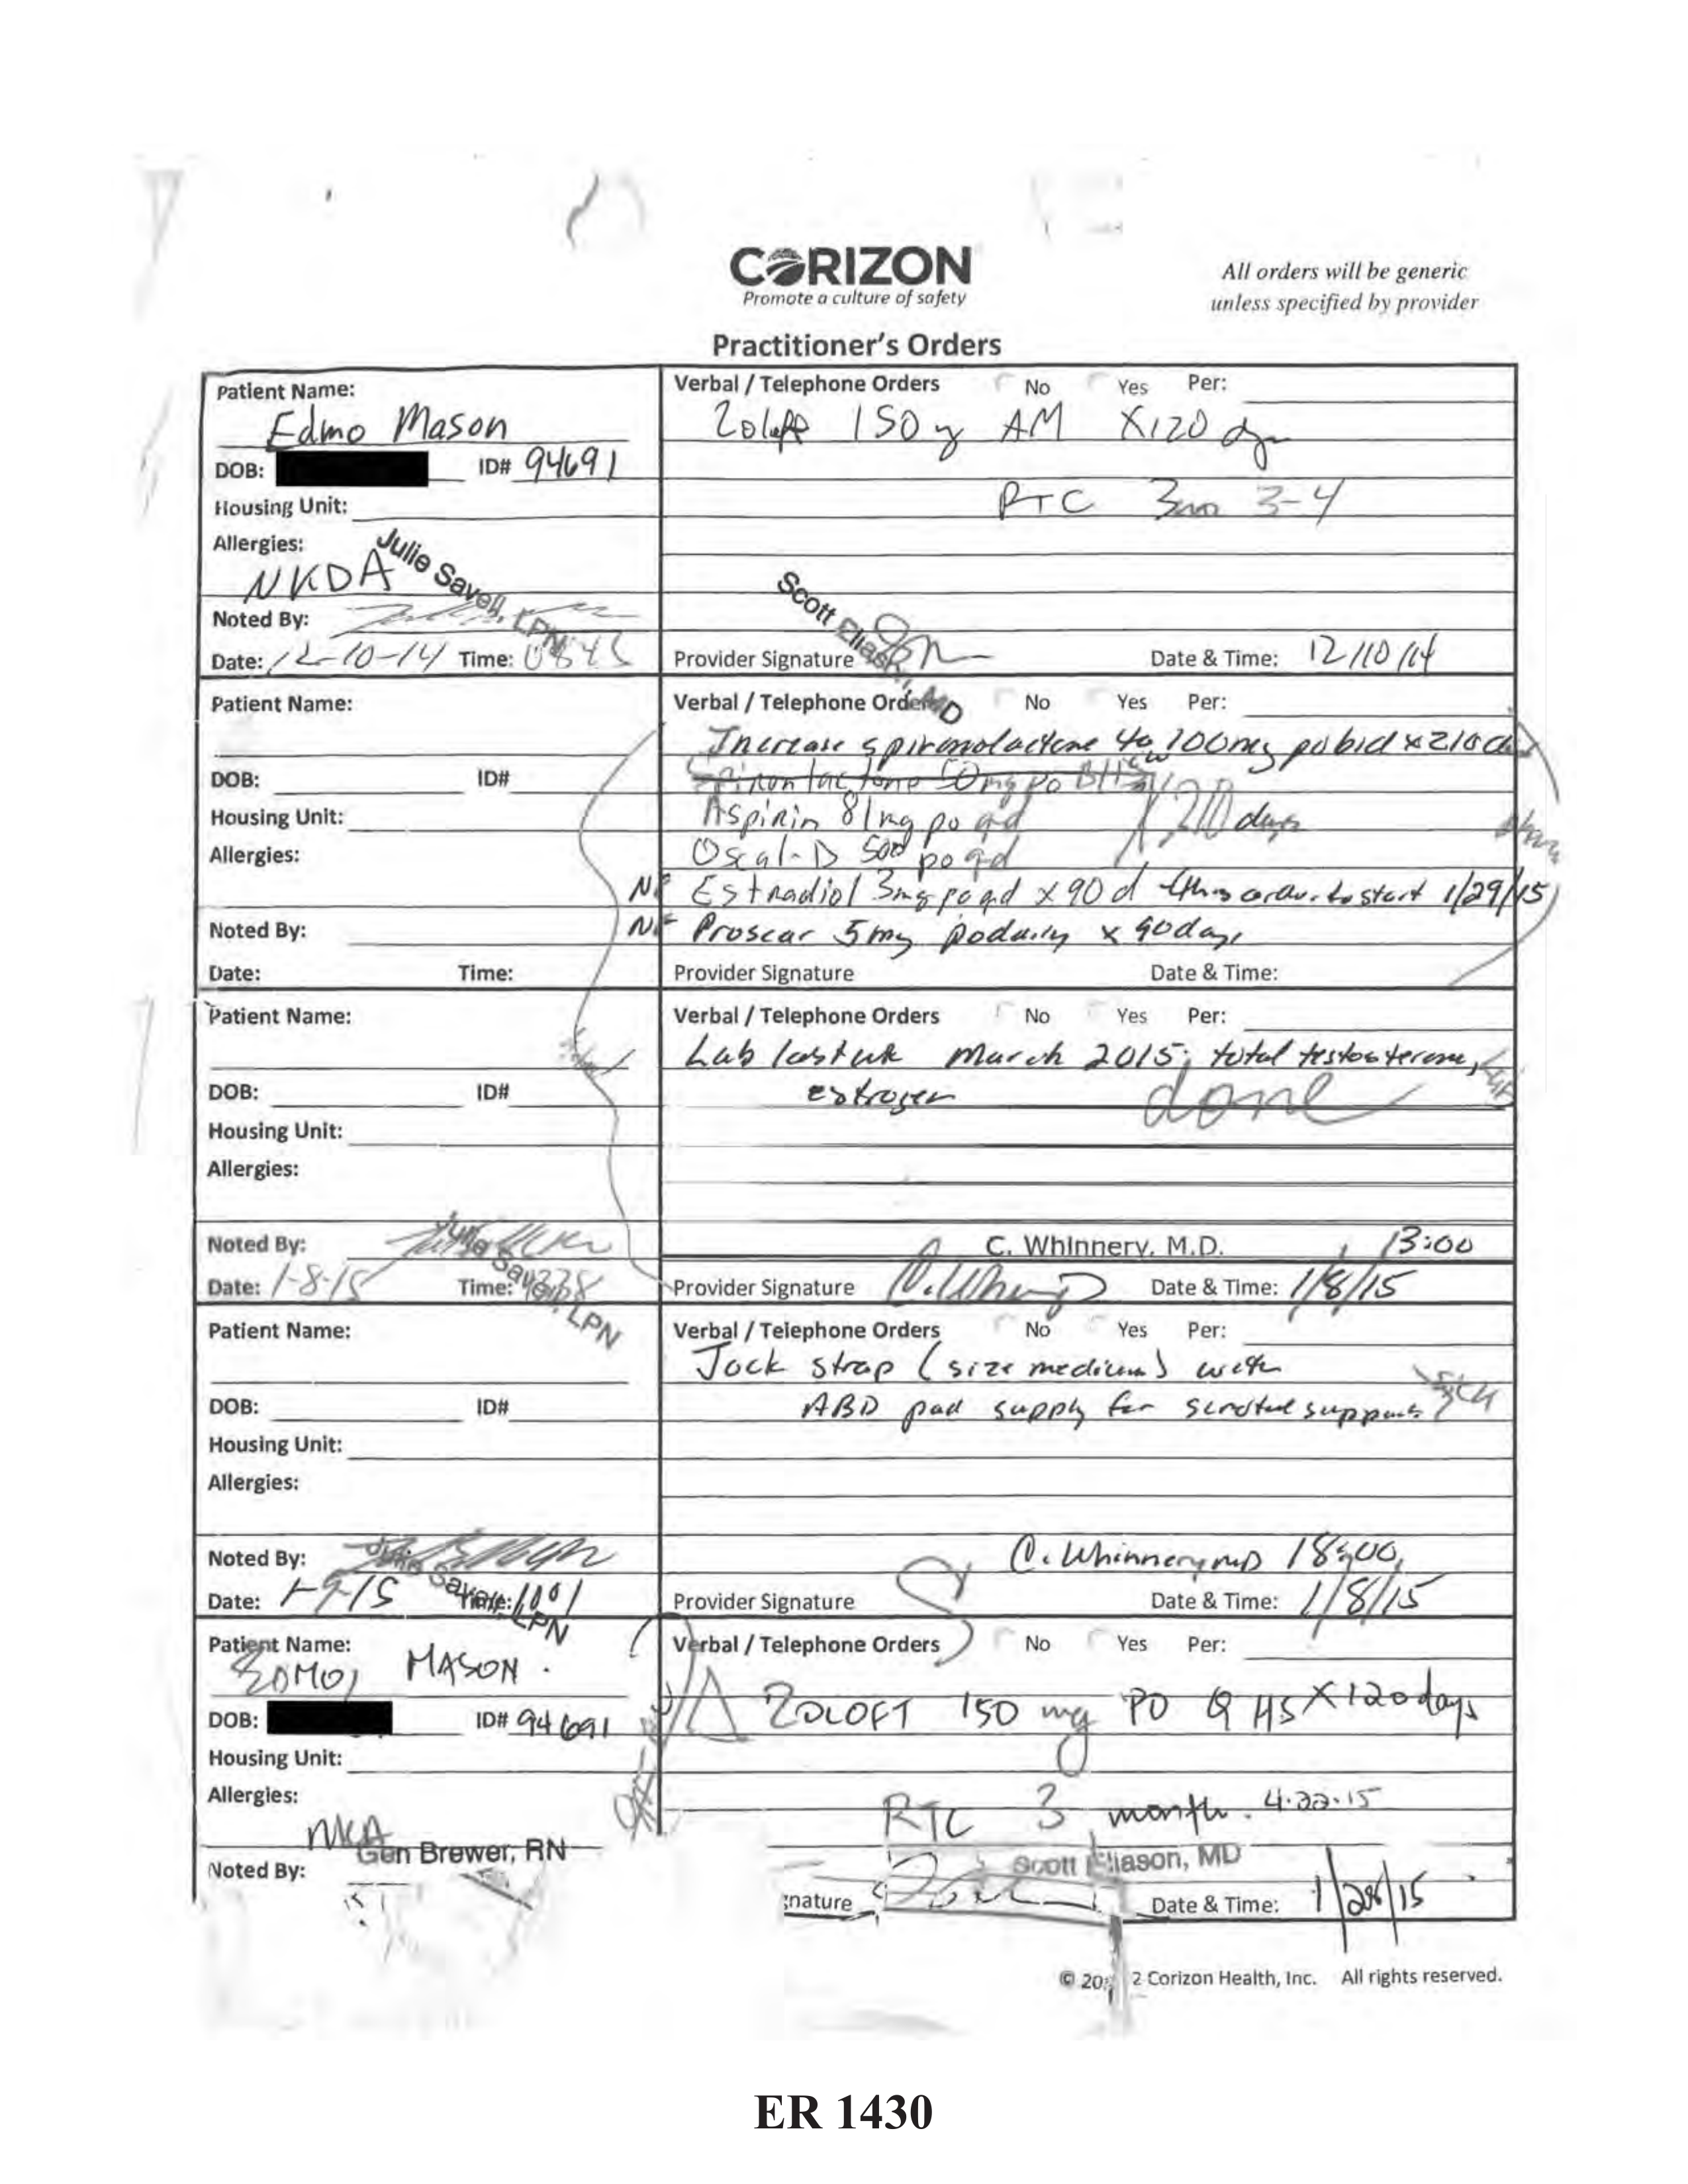 CORIZON
Promote a culture of safety
All orders will be generic
unless specified by provider
Practitioner's Orders
Patient Name:
Edmo Mason
DOB: ID# 94691
Housing Unit:
Allergies:
NKDA
Julie Savell, LPN
Noted By:
Date: 12-10-14 Time: 0845
Verbal / Telephone Orders No Yes Per:
Zoloft 150 AM X120
RTC 3m 3-4
Scott Eliason, MD
Provider Signature Date & Time: 12/10/14
Patient Name:
DOB: ID#
Housing Unit:
Allergies:
Noted By:
Date: Time:
Verbal / Telephone Orders No Yes Per:
Increase spironolactone to 100mg po bid x210d
Spironlactone 50mg po
Aspirin 81mg po qd X 210 days
Oscal-D 500 po qd
NF Estradiol 3mg po qd x 90 d this order to start 1/29/15
NF Proscar 5mg po daily x 90days
Provider Signature Date & Time:
Patient Name:
DOB: ID#
Housing Unit:
Allergies:
Noted By:
Date: 1-8-15 Time:
Julie Savell, LPN
Verbal / Telephone Orders No Yes Per:
Lab last wk March 2015; total testosterone,
estrogen done
C. Whinnery, M.D. 13:00
Provider Signature C. Whinnery Date & Time: 1/8/15
Patient Name:
DOB: ID#
Housing Unit:
Allergies:
Noted By:
Date: 1-9-15 Time: 1001
Julie Savell, LPN
Verbal / Telephone Orders No Yes Per:
Jock strap (size medium) with
ABD pad supply for scrotal support
C. Whinnery MD 18:00
Provider Signature Date & Time: 1/8/15
Patient Name:
EDMO, MASON.
DOB: ID# 94691
Housing Unit:
Allergies:
NKA
Gen Brewer, RN
Noted By:
Verbal / Telephone Orders No Yes Per:
ZOLOFT 150 mg PO Q HS X 120 days
RTC 3 month. 4.22.15
Scott Eliason, MD
gnature Date & Time: 1/28/15
2 Corizon Health, Inc. All rights reserved.
ER 1430